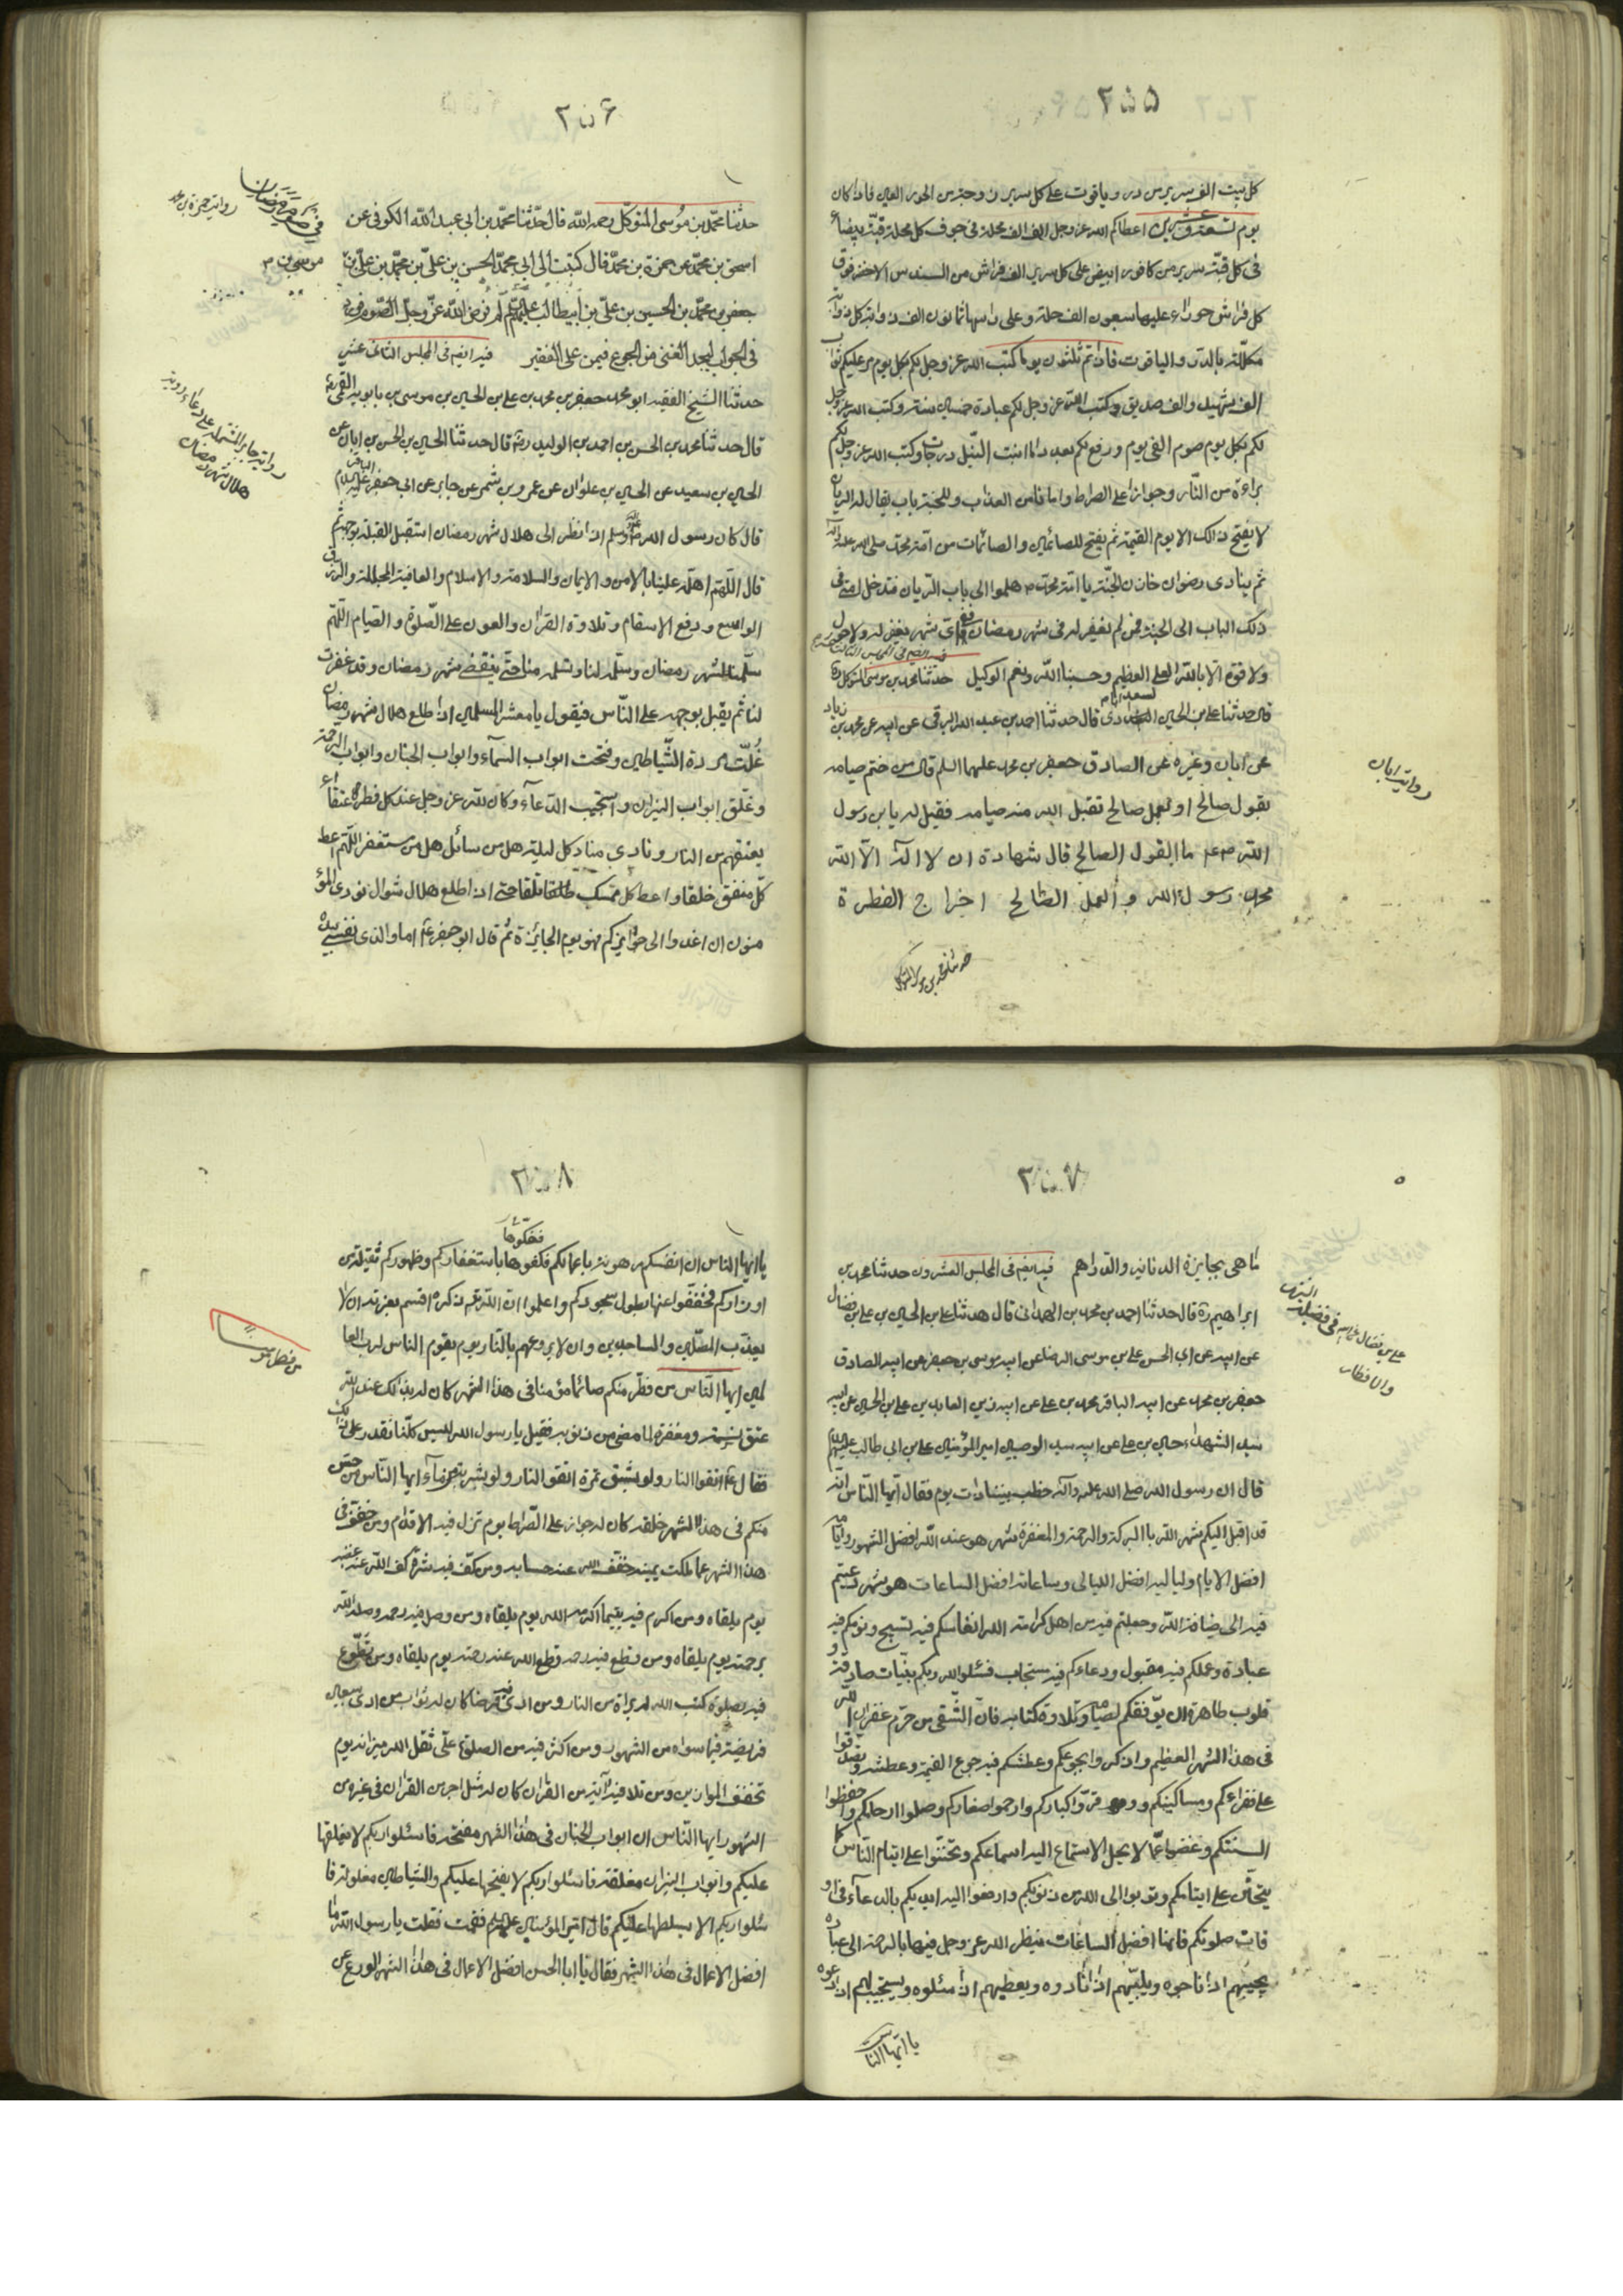 ٢٥٥
كل بيت الف سرير من در وياقوت على كل سرير زوجة من الحور العين فاذا كان
يوم تسعة وعشرين اعطاكم الله عز وجل الف الف محلة فى جوف كل محلة قبة بيضاء
فى كل قبة سرير من كافور ابيض على كل سرير الف فراش من السندس الاخضر فوق
كل فراش حوراء عليها سبعون الف حلة وعلى راسها ثمانون الف ذوابة كل ذوابة
مكللة بالدر والياقوت فاذا تم ثلثون يوما كتب الله عز وجل لكم بكل يوم مر عليكم ثواب
الف شهيد والف صديق وكتب الله عز وجل لكم عبادة خمسين سنة وكتب الله عز وجل
لكم بكل يوم صوم الفى يوم ورفع لكم بعدد ما انبت النيل درجات وكتب الله عز وجل لكم
براءة من النار وجوازا على الصراط وامانا من العذاب وللجنة باب يقال له الريان
لا يفتح ذلك الا يوم القيمة ثم يفتح للصائمين والصائمات من امة محمد صلى الله عليه وآله
ثم ينادى رضوان خازن الجنة يا امة محمد ص هلموا الى باب الريان فتدخل امتى فى
ذلك الباب الى الجنة فمن لم يغفر له فى شهر رمضان ففى اى شهر يغفر له ولا حول
ولا قوة الا بالله العلى العظيم وحسبنا الله ونعم الوكيل حدثنا محمد بن موسى المتوكل ره
قال حدثنا على بن الحسين السعدابادى قال حدثنا احمد بن عبد الله البرقى عن ابيه عن محمد بن زياد
عن ابان وغيره عن الصادق جعفر بن محمد عليهما السلم قال من ختم صيامه
بقول صالح او بعمل صالح تقبل الله منه صيامه فقيل له يا بن رسول
الله ص ما القول الصالح قال شهادة ان لا اله الا الله
محمد رسول الله و العمل الصالح اخراج الفطرة
رواية ابان
حدثنا محمد بن موسى المتوكل
٢٥٦
حدثنا محمد بن موسى المتوكل رحمه الله قال حدثنا محمد بن ابى عبد الله الكوفى عن
اسحق بن محمد عن حمزة بن محمد قال كتبت الى ابى محمد الحسن بن على بن محمد بن على بن
جعفر بن محمد بن الحسين بن على بن ابيطالب عليهم السلم لم فرض الله عز وجل الصوم فورد
فى الجواب ليجد الغنى مس الجوع فيمن على الفقير فيه ايضا فى المجلس الثانى عشر
حدثنا الشيخ الفقيه ابو محمد جعفر بن محمد بن على بن الحسين بن موسى بن بابويه القمى ره
قال حدثنا محمد بن الحسن بن احمد بن الوليد ره قال حدثنا الحسين بن الحسن بن ابان عن
الحسين بن سعيد عن الحسين بن علوان عن عمرو بن شمر عن جابر عن ابى جعفر الباقر عليه السلام
قال كان رسول الله صلى الله عليه وسلم اذا نظر الى هلال شهر رمضان استقبل القبلة بوجهه ثم
قال اللهم اهله علينا بالامن والايمان والسلامة والاسلام والعافية المجللة والرزق
الواسع ودفع الاسقام وتلاوة القران والعون على الصلوة والصيام اللهم
سلمنا لشهر رمضان وسلمه لنا وتسلمه منا حتى ينقضى شهر رمضان وقد غفرت
لنا ثم يقبل بوجهه على الناس فيقول يا معشر المسلمين اذا طلع هلال شهر رمضان
غلت مردة الشياطين وفتحت ابواب السماء وابواب الجنان وابواب الرحمة
وغلق ابواب النيران واستجيب الدعاء وكان لله عز وجل عند كل فطر عتقاء
يعتقهم من النار ونادى مناد كل ليلة هل من سائل هل من مستغفر اللهم اعط
كل منفق خلفا واعط كل ممسك تلفا حتى اذا طلع هلال شوال نودى المؤ
منون ان اغدوا الى جوائزكم فهو يوم الجايزة ثم قال ابو جعفر ع اما والذى نفسى بيده
رواية حمزة بن محمد
رواية جابر المشتملة على دعاء رؤية
هلال شهر رمضان
٢٥٧
ما هى بجايزة الدنانير والدراهم فيه ايضا فى المجلس العشرون حدثنا محمد بن
ابراهيم ره قال حدثنا احمد بن محمد بن الهمدانى قال حدثنا على بن الحسين بن على بن فضال
عن ابيه عن ابى الحسن على بن موسى الرضا عن ابيه موسى بن جعفر عن ابيه الصادق
جعفر بن محمد عن ابيه الباقر محمد بن على عن ابيه زين العابدين على بن الحسين عن ابيه
سيد الشهداء حسين بن على عن ابيه سيد الوصيين امير المؤمنين على بن ابى طالب عليهم السلام
قال ان رسول الله صلى الله عليه وآله خطب بنا ذات يوم فقال ايها الناس انه
قد اقبل اليكم شهر الله بالبركة والرحمة والمغفرة شهر هو عند الله افضل الشهور وايامه
افضل الايام ولياليه افضل الليالى وساعاته افضل الساعات هو شهر دعيتم
فيه الى ضيافة الله وجعلتم فيه من اهل كرامة الله انفاسكم فيه تسبيح ونومكم فيه
عبادة وعملكم فيه مقبول ودعاءكم فيه مستجاب فسئلوا الله ربكم بنيات صادقة و
قلوب طاهرة ان يوفقكم لصيامه وتلاوة كتابه فان الشقى من حرم غفران الله
فى هذا الشهر العظيم واذكروا بجوعكم وعطشكم فيه جوع القيمة وعطشه وتصدقوا
على فقراءكم ومساكينكم ووقروا كباركم وارحموا صغاركم وصلوا ارحامكم واحفظوا
السنتكم وغضوا عما لا يحل الاستماع اليه اسماعكم وتحننوا على ايتام الناس كما
يتحنن على ايتامكم وتوبوا الى الله من ذنوبكم وارفعوا اليه ايديكم بالدعاء فى او
قات صلوتكم فانها افضل الساعات ينظر الله عز وجل فيها بالرحمة الى عباده
يجيبهم اذا ناجوه ويلبيهم اذا نادوه ويعطيهم اذا سئلوه ويستجيب لهم اذا دعوه
يا ايها الناس
٢٥٨
يا ايها الناس ان انفسكم مرهونة باعمالكم ففكوها باستغفاركم وظهوركم ثقيلة من
اوزاركم فخففوا عنها بطول سجودكم واعلموا ان الله عز ذكره اقسم بعزته ان لا
يعذب المصلين والساجدين وان لا يروعهم بالنار يوم يقوم الناس لرب العا
لمين ايها الناس من فطر منكم صائما مؤمنا فى هذا الشهر كان له بذلك عند الله
عتق نسمة ومغفرة لما مضى من ذنوبه فقيل يا رسول الله ليس كلنا نقدر على ذلك
فقال ع اتقوا النار ولو بشق تمرة اتقوا النار ولو بشربة من ماء ايها الناس من حسن
منكم فى هذا الشهر خلقه كان له جواز على الصراط يوم تزل فيه الاقدام ومن خفف فى
هذا الشهر عما ملكت يمينه خفف الله عنه حسابه ومن كف فيه شره كف الله عنه غضبه
يوم يلقاه ومن اكرم فيه يتيما اكرمه الله يوم يلقاه ومن وصل فيه رحمه وصله الله
برحمته يوم يلقاه ومن قطع فيه رحمه قطع الله عنه رحمته يوم يلقاه ومن تطوع
فيه بصلوة كتب الله له براة من النار ومن ادى فيه فرضا كان له ثواب من ادى سبعين
فريضة فيما سواه من الشهور ومن اكثر فيه من الصلوة على ثقل الله ميزانه يوم
تخفف الموازين ومن تلا فيه آية من القران كان له مثل اجر من ختم القران فى غيره من
الشهور ايها الناس ان ابواب الجنان فى هذا الشهر مفتحة فاسئلوا ربكم لا يغلقها
عليكم وابواب النيران مغلقة فاسئلوا ربكم لا يفتحها عليكم والشياطين مغلولة فا
سئلوا ربكم الا يسلطها عليكم قال امير المؤمنين عليه السلم فقمت فقلت يا رسول الله ما
افضل الاعمال فى هذا الشهر فقال يا ابا الحسن افضل الاعمال فى هذا الشهر الورع عن